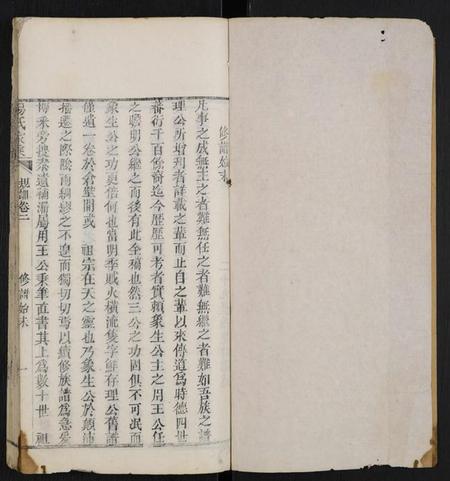 修譜始末
凡事之成無主之者難無任之者難無繼之者難如吾族之譜
理公所增列者詳載之葦而止自之葦以來傳道爲時德四世
蕃衍千百餘奇迄今歷歷可考者實賴象生公主之用王公任
之聰明公繼之而後有此全璃也然三公之功固俱不可泯而
象生公之功更倍何也當明季賊火橫流隻字鮮存理公舊譜
僅遺一卷於倉壁間或 祖宗在天之靈也乃象生公於顛沛
播遷之際陰雨綢繆之不遑而獨切切焉以續修族譜爲意爰
博采旁搜祭遺補漏屬用王公秉筆直書其上爲數十世 祖
楊氏家乘
規訓卷二
修譜始末
一